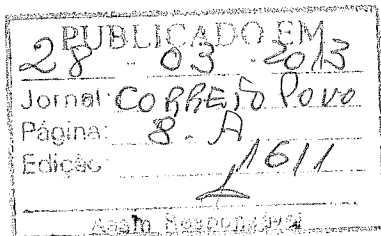 PUBLICADO EM
28 - 03 - 2013
Jornal: CORREIO POVO
Página: 8-A
Edição: 1611
Assin. Responsável